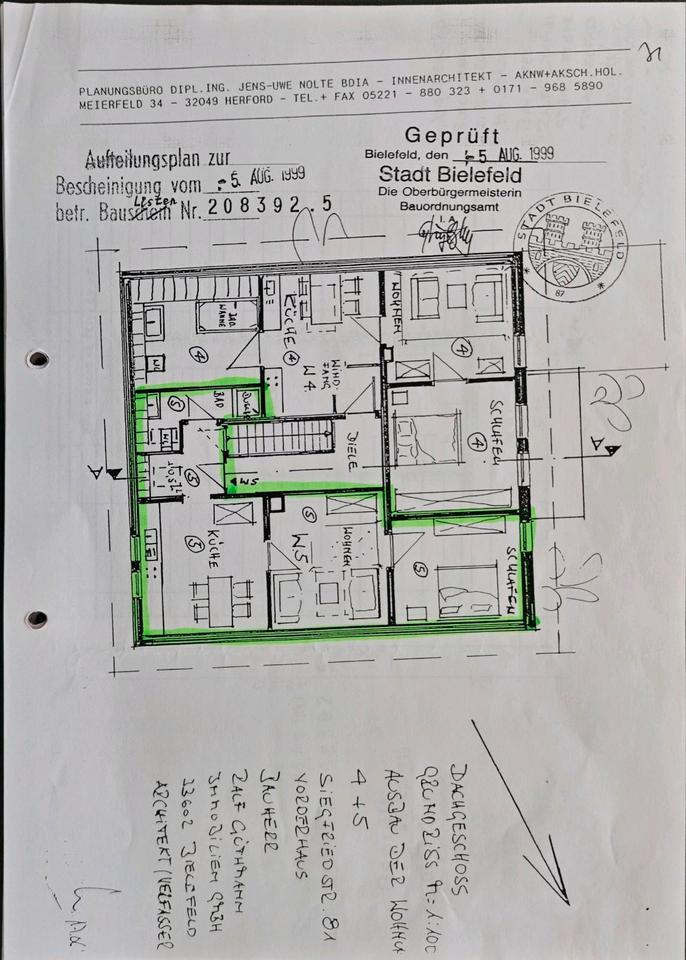 PLANUNGSBÜRO DIPL.ING. JENS-UWE NOLTE BDIA - INNENARCHITEKT - AKNW+AKSCH.HOL.
MEIERFELD 34 - 32049 HERFORD - TEL.+ FAX 05221 - 880 323 + 0171 - 968 5890
Aufteilungsplan zur
Bescheinigung vom -5. AUG. 1999
betr. Bauschein Nr. 208392.5
Listen
Geprüft
Bielefeld, den -5. AUG. 1999
Stadt Bielefeld
Die Oberbürgermeisterin
Bauordnungsamt
I.A.
STADT BIELEFELD
87
BAD
WANNE
4
KÜCHE
4
WIND-
FANG
W4
WOHNEN
4
SCHLAFEN
4
DIELE
5
BAD
DUSCHE
5
W5
KÜCHE
5
WOHNEN
5
W5
SCHLAFEN
5
A
A
DACHGESCHOSS
GRUNDRISS M=1:100
AUSBAU DER WOHNG
4+5
SIEGFRIEDSTR. 81
VORDERHAUS
BAUHERR
RALF GÜTHMANN
IMMOBILIEN GMBH
33602 BIELEFELD
ARCHITEKT/VERFASSER